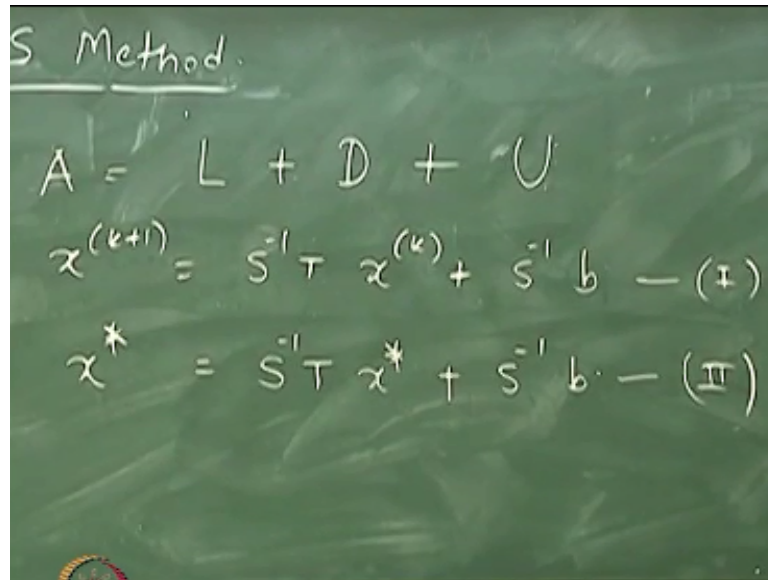 S Method.
A = L + D + U
x^(k+1) = S^-1 T x^(k) + S^-1 b — (I)
x^* = S^-1 T x^* + S^-1 b. — (II)